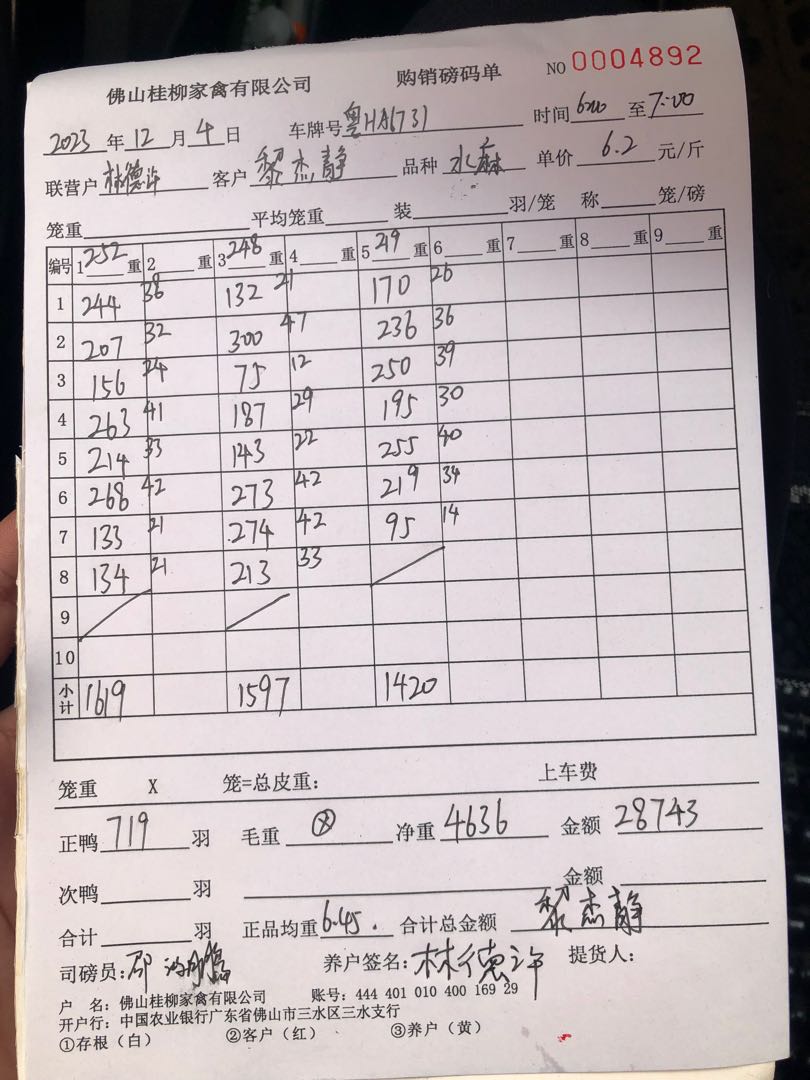 佛山桂柳家禽有限公司 购销磅码单 NO 0004892
2023 年 12 月 4 日 车牌号 粤HA1731 时间 6:00 至 7:00
联营户 林德许 客户 黎杰静 品种 水森 单价 6.2 元/斤
笼重 平均笼重 装 羽/笼 称 笼/磅
编号 1 252 重 2 重 3 248 重 4 重 5 219 重 6 重 7 重 8 重 9 重
1 244 38 132 21 170 26
2 207 32 300 47 236 36
3 156 24 75 12 250 39
4 263 41 187 29 195 30
5 214 33 143 22 255 40
6 268 42 273 42 219 34
7 133 21 274 42 95 14
8 134 21 213 33
9
10
小计 1619 1597 1420
笼重 X 笼=总皮重: 上车费
正鸭 719 羽 毛重 净重 4636 金额 28743
次鸭 羽 金额
合计 羽 正品均重 6.45. 合计总金额 黎杰静
司磅员: 养户签名: 林德许 提货人:
户 名: 佛山桂柳家禽有限公司 账号: 444 401 010 400 169 29
开户行: 中国农业银行广东省佛山市三水区三水支行
①存根(白) ②客户(红) ③养户(黄)